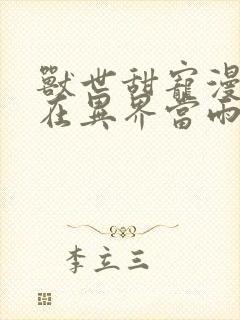 獸世甜寵漫
在異界當雨
李立三